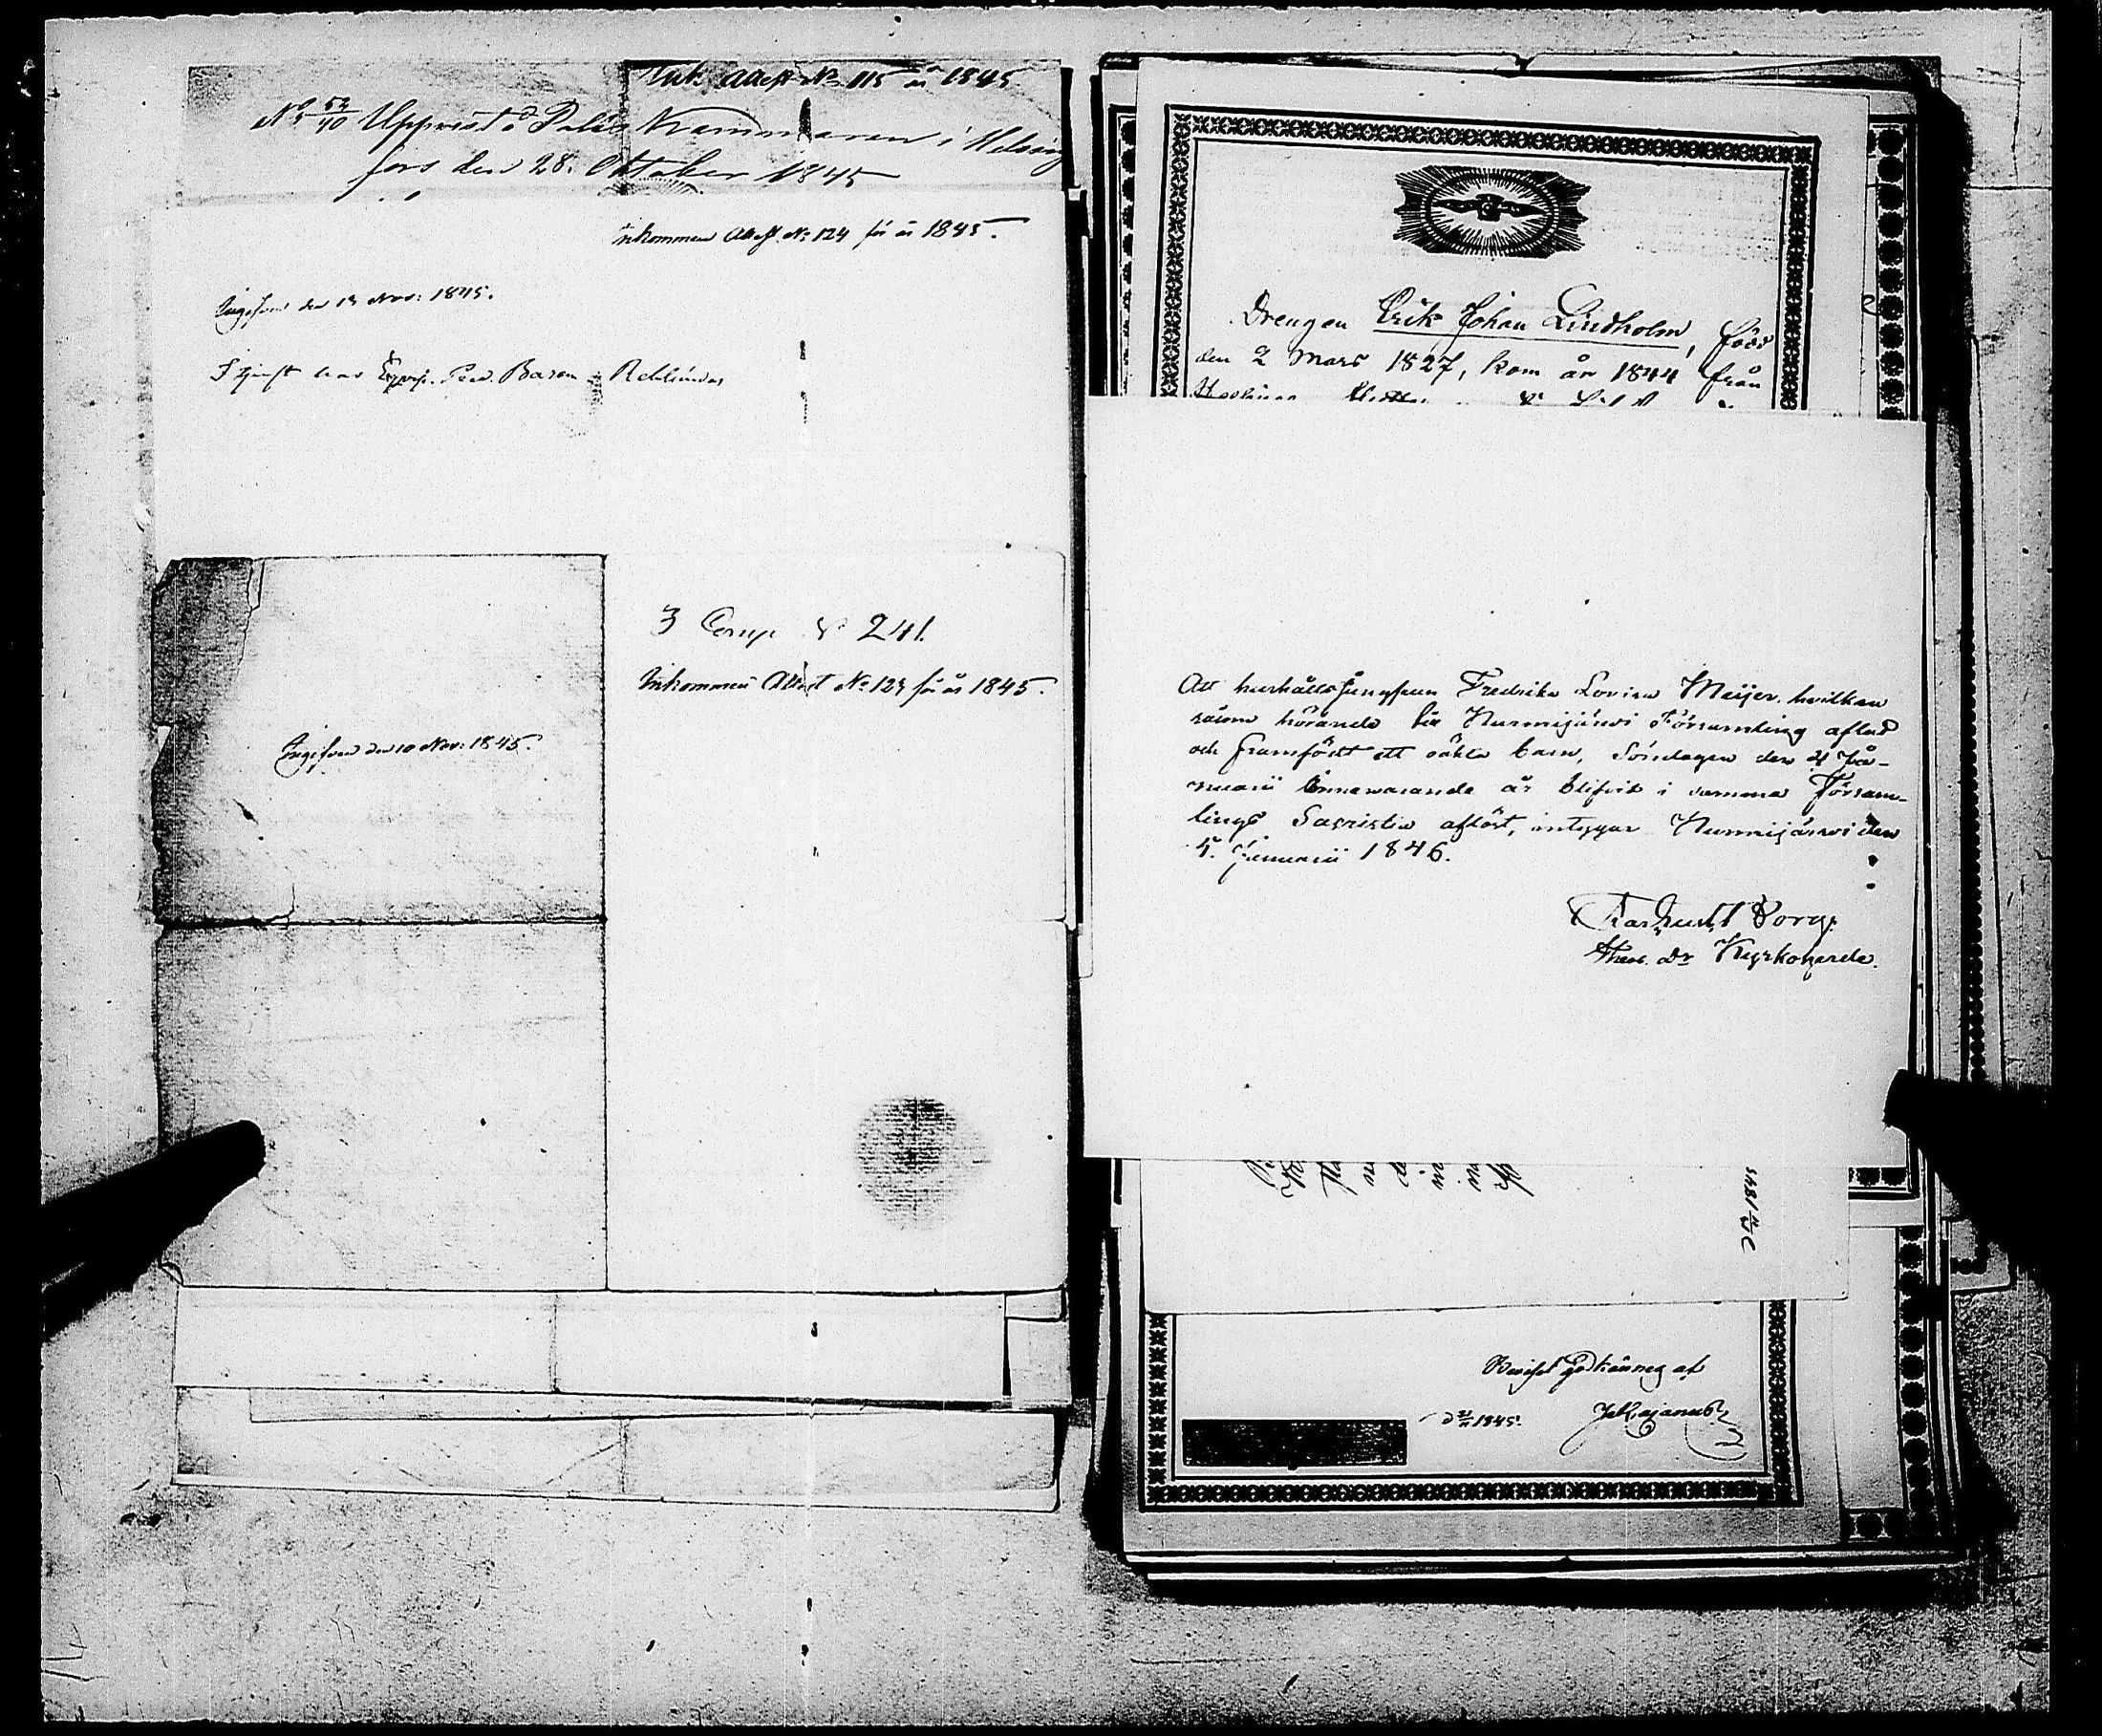 Ink. Attest No 115 år 1845.
No 52/40 Uppvist å Polis Kammaren i Helsing
fors den 28. Oktober 1845
Inkommen Attest No 124 för år 1845.
Ingifven den 13 Nov: 1845.
I tjenst hos Baron Rehbinder
3 Comp No 241.
Inkommen Attest No 123 för år 1845.
Ingifven den 10 Nov: 1845.
Drengen Erik Johan Lindholm, född
den 2 Mars 1827, kom år 1844 från
Att hushålls Jungfrun Fredrika Lovisa Meijer, hvilken
såsom hörande till Nurmijärvi Församling aflad
och framfödt ett oäkta barn, Söndagen den 4 Ja-
nuarii innewarande år blifvit i samma Församl-
lings Sacristia aflöst, intygar Nurmijärvi den
5. Januarii 1846.
Borg.
Theol. Dr Kyrkoherde.
1845
Beviset godkännes af
1845.